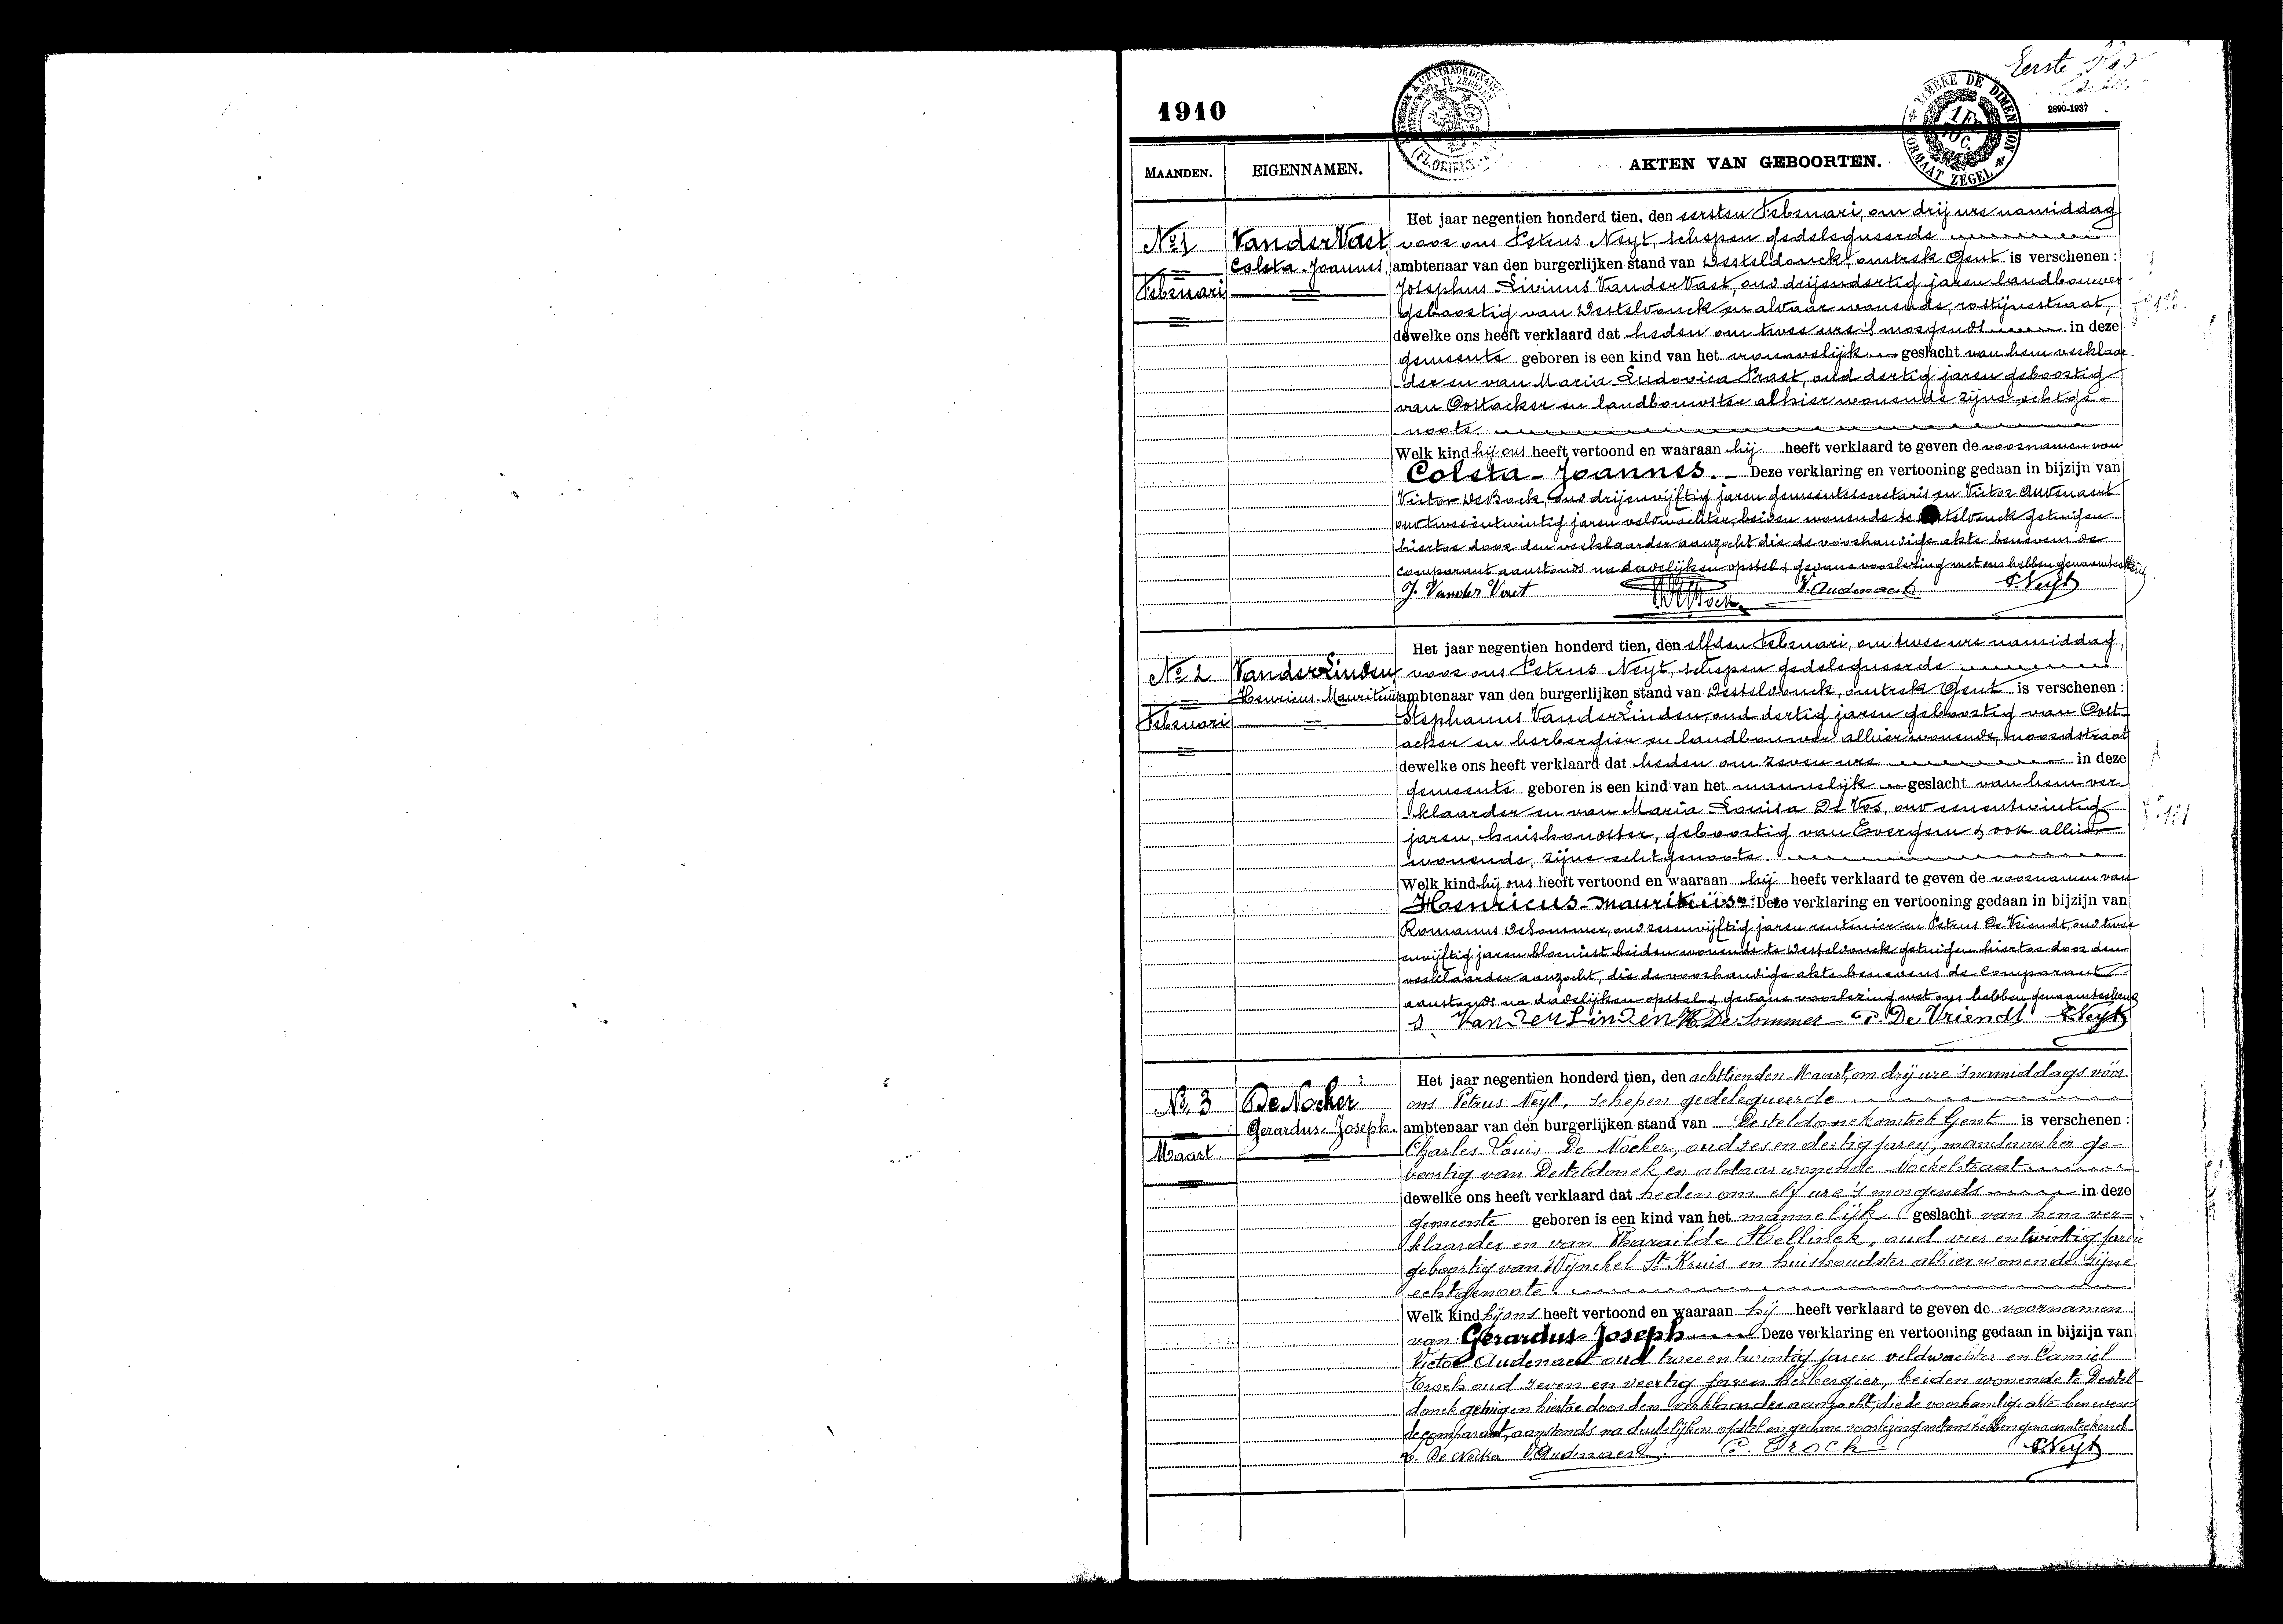 Eerste
2890-1937
1910
TIMBRE DE DIMENSION
FORMAAT ZEGEL
MAANDEN.
EIGENNAMEN.
AKTEN VAN GEBOORTEN.
No 1
Februari
Vander Vaet,
Coleta-Joannes.
Het jaar negentien honderd tien, den eersten Februari, om drij ure namiddag
voor ons Petrus Neyt, schepen gedelegueerde
ambtenaar van den burgerlijken stand van Desteldonck, omtrek Gent is verschenen :
Josephus Livinus Vander Vaet, oud drijendertig jaren landbouwer
geboortig van Desteldonck en aldaar wonende, rostijnestraat,
dewelke ons heeft verklaard dat heden om twee ure 's morgends in deze
gemeente geboren is een kind van het vrouwelijk geslacht van hem verklaar-
der en van Maria Ludovica Praet, oud dertig jaren geboortig
van Oostacker en landbouwster alhier wonende zijne echtge-
noote.
Welk kind hij ons heeft vertoond en waaraan hij heeft verklaard te geven de voornamen van
Coleta-Joannes. Deze verklaring en vertooning gedaan in bijzijn van
Victor De Bock, oud drijenvijftig jaren gemeentesecretaris en Victor Audenaert
oud tweeentwintig jaren veldwachter, beiden wonende te telonck getuigen
hiertoe door den verklaarder aanzocht die de voorhandige akte benevens de
comparant aanstonds na dadelijken opstel & gedane voorlezing met ons hebben genaamteekend
J. Vander Vaet V. Audenaert P. Neyt
No 2
Februari
VanderLinden,
Henricus-Mauritiüs
Het jaar negentien honderd tien, den elfden Februari, om twee ure namiddag,
voor ons Petrus Neyt, schepen gedelegueerde
ambtenaar van den burgerlijken stand van Desteldonck, omtrek Gent is verschenen :
Stephanus VanderLinden, oud dertig jaren geboortig van Oost-
acker en herbergier en landbouwer alhier wonende, noordstraat
dewelke ons heeft verklaard dat heden om zeven ure in deze
gemeente geboren is een kind van het mannelijk geslacht van hem ver-
klaarder en van Maria Louisa De Vos, oud eenentwintig
jaren, huishoudster, geboortig van Evergem & ook alhier
wonende, zijne echtgenoote.
Welk kind hij ons heeft vertoond en waaraan hij heeft verklaard te geven de voornamen van
Henricus-Mauritiüs Deze verklaring en vertooning gedaan in bijzijn van
Romanus DeSommer, oud zesenvijftig jaren rentenier en Petrus De Vriendt, oud twee
envijftig jaren bloemist beiden wonende te Desteldonck getuigen hiertoe door den
verklaarder aanzocht, die de voorhandige akte benevens de comparant
aanstonds na dadelijken opstel & gedane voorlezing met ons hebben genaamteekend
S VanderLinden R. De Sommer P. De Vriendt P. Neyt
No. 3
Maart.
De Nocker
Gerardus-Joseph.
Het jaar negentien honderd tien, den achttienden Maart, om drij ure 's namiddags vóór
ons Petrus Neyt, schepen gedelegueerde
ambtenaar van den burgerlijken stand van Desteldonck omtrek Gent is verschenen :
Charles Louis De Nocker, oud zesendertig jaren, mandemaker ge-
boortig van Desteldonck en aldaar wonende Mochelstraat
dewelke ons heeft verklaard dat heden om elf ure 's morgends in deze
gemeente geboren is een kind van het mannelijk geslacht van hem ver-
klaarder en van Pharaïlde Hellinck, oud vier en twintig jaren
geboortig van Wijnckel St Kruis en huishoudster alhier wonende zijne
echtgenoote.
Welk kind hij ons heeft vertoond en waaraan hij heeft verklaard te geven de voornamen
van: Gerardus-Joseph Deze verklaring en vertooning gedaan in bijzijn van
Victor Audenaert oud tweeentwintig jaren veldwachter en Camiel
Drock oud zeven en veertig jaren herbergier, beiden wonende te Destel-
donck getuigen hiertoe door den verklaarder aanzocht, die de voorhandige akte benevens
de comparant, aanstonds na dadelijken opstel en gedane voorlezing met ons hebben genaamteekend
De Nocker V. Audenaert C. Drock P. Neyt